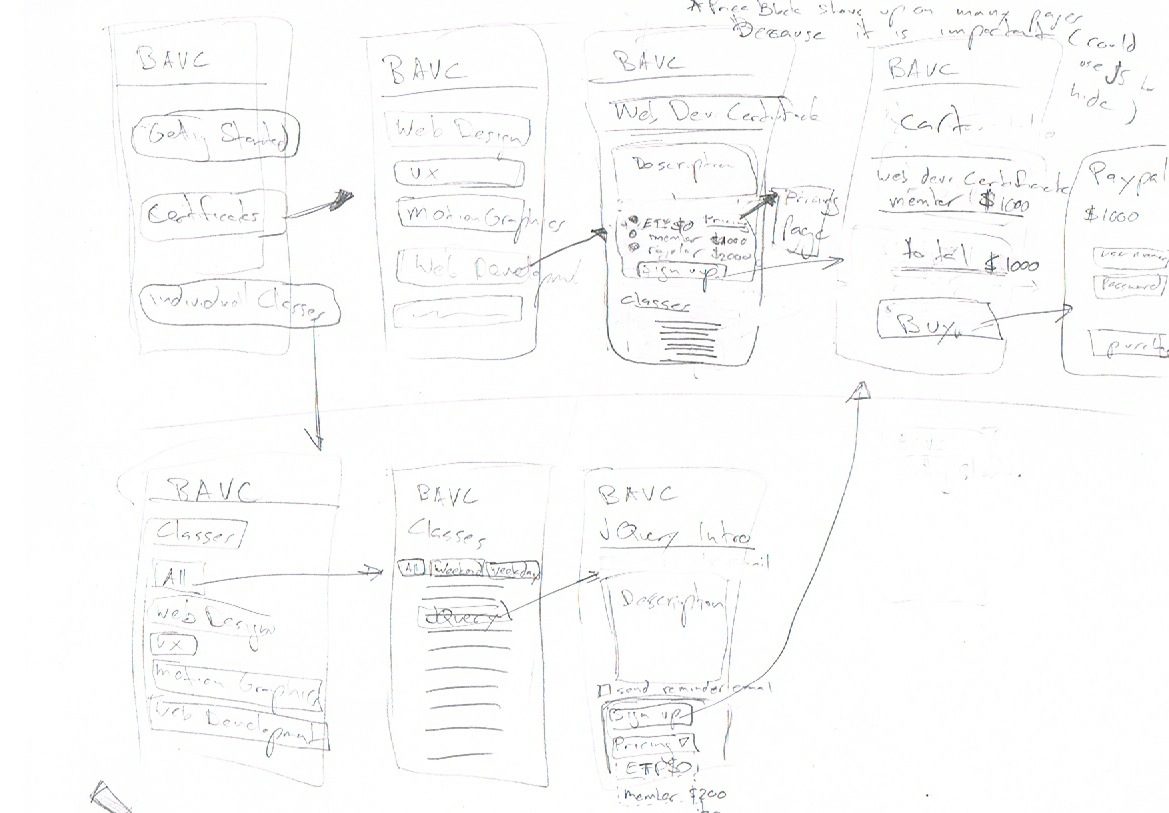 Price Block shows up on many pages
Because it is important (could
use JS to
hide )
BAVC
Getting Started
Certificates
Individual Classes
BAVC
Web Design
UX
Motion Graphics
Web Development
BAVC
Web Dev Certificate
Description
ETP $0 Pricing
member $1000
regular $2000
Sign up
Classes
Pricing
Page
BAVC
Cart
Web dev Certificate
member $1000
total $1000
Buy
Paypal
$1000
user name
Password
BAVC
Classes
All
Web Design
UX
Motion Graphics
Web Development
BAVC
Classes
All Weekend Weekday
JQuery
BAVC
JQuery Intro
Description
send reminder email
Sign up
Pricing
ETP $0
member $200